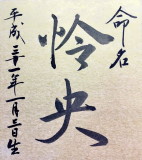 命名
怜央
平成三十一年一月三日生